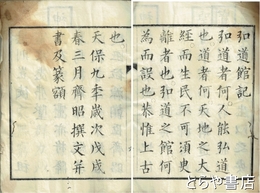 弘道館記
弘道者何人能弘道
也道者何天地之大
經而生民不可須臾
離者也弘道之館何
為而設也恭惟上古
也
天保九年歲次戊戌
春三月齊昭撰文并
書及篆額
とらや書店